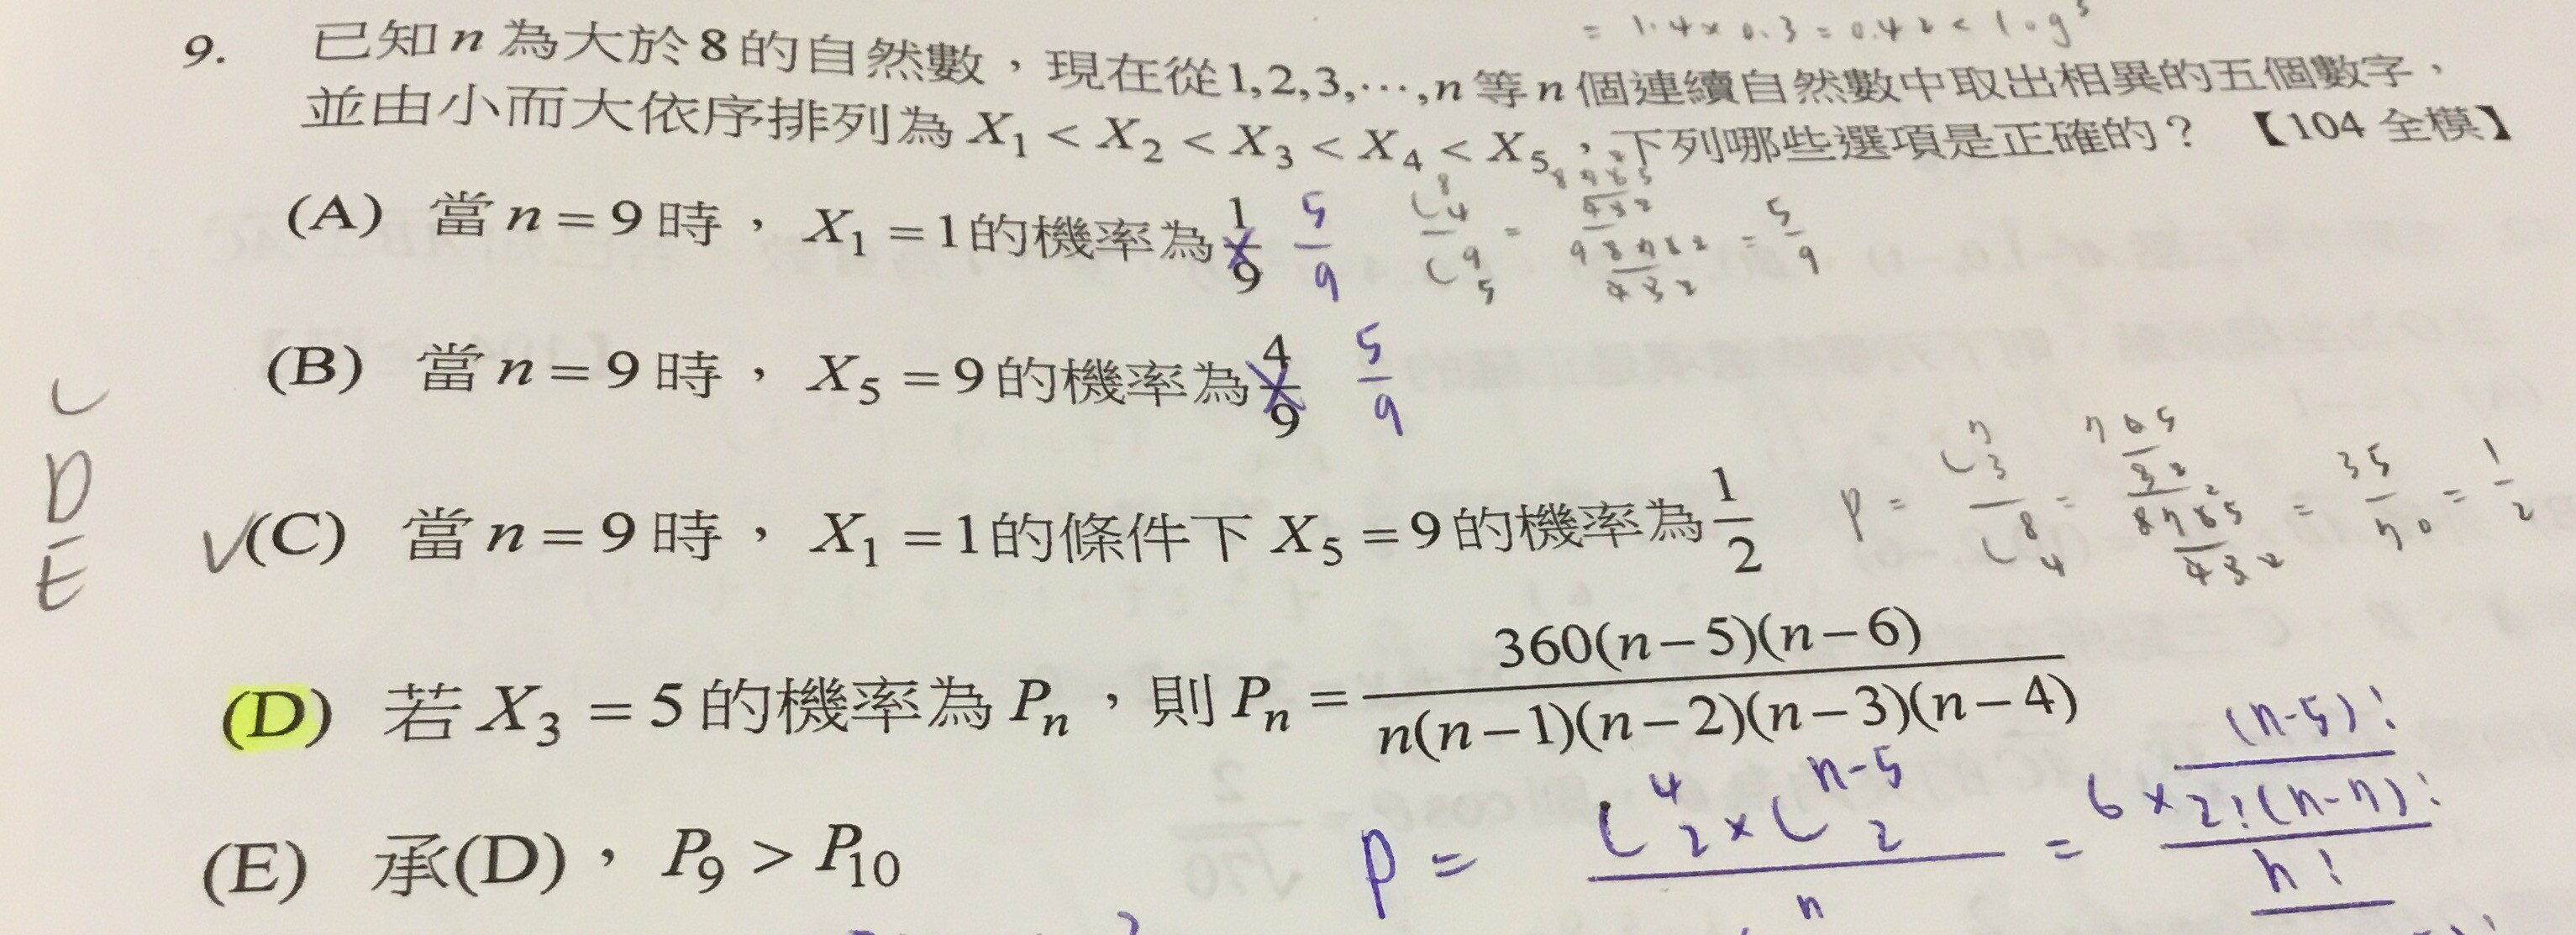 = 1.4 × 0.3 = 0.42 < log 5
9. 已知 n 為大於 8 的自然數，現在從 1,2,3,⋯,n 等 n 個連續自然數中取出相異的五個數字，
並由小而大依序排列為 X₁ < X₂ < X₃ < X₄ < X₅，下列哪些選項是正確的？ 【104 全模】
(A) 當 n = 9 時， X₁ = 1 的機率為 1/9 5/9 C⁸₄ / C⁹₅ = = 5/9
(B) 當 n = 9 時， X₅ = 9 的機率為 4/9 5/9
C
D
E
(C) 當 n = 9 時， X₁ = 1 的條件下 X₅ = 9 的機率為 1/2 P = C⁷₃ / C⁸₄ = = 35/70 = 1/2
(D) 若 X₃ = 5 的機率為 Pₙ，則 Pₙ = 360(n−5)(n−6) / n(n−1)(n−2)(n−3)(n−4)
(E) 承(D)， P₉ > P₁₀
P = C⁴₂ × Cⁿ⁻⁵₂ / n = 6 × (n-5)! / 2!(n-7)! / n!